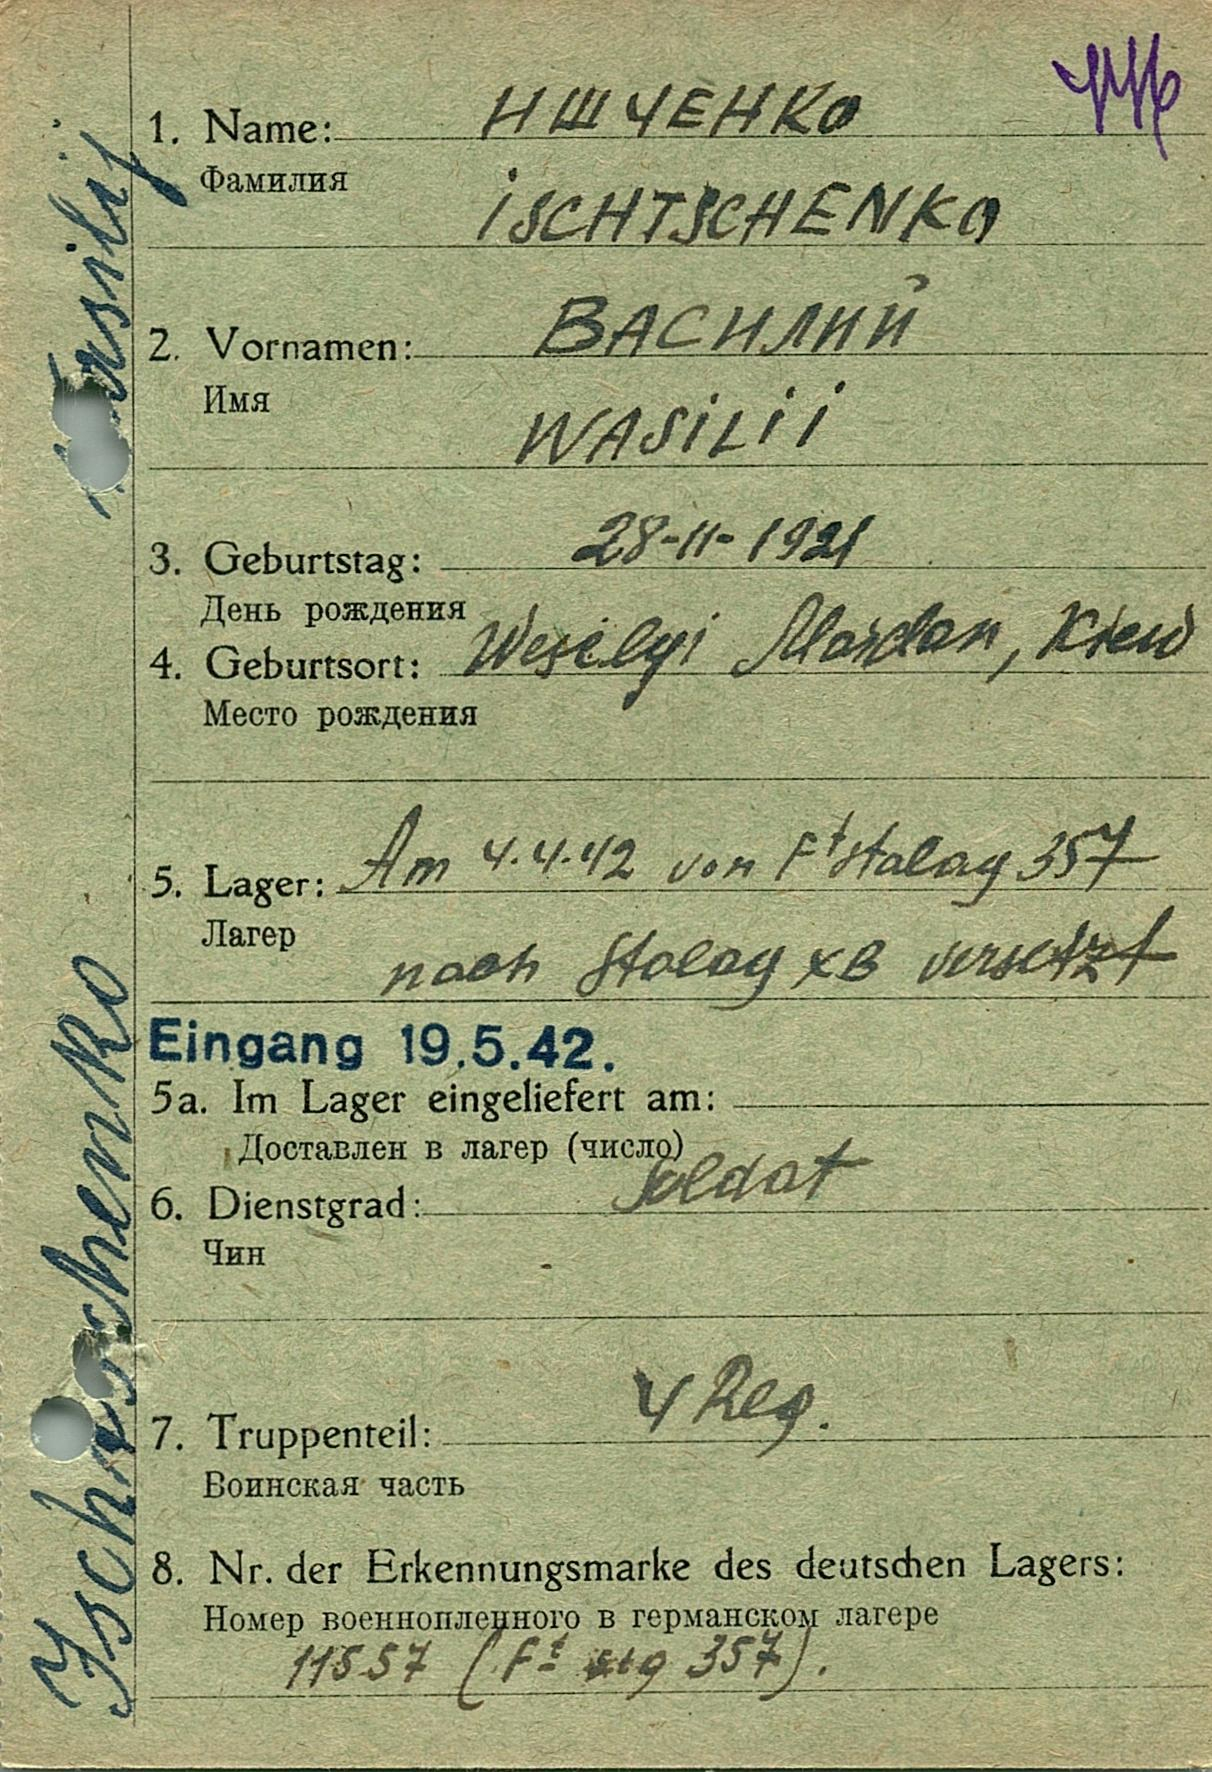 1. Name: ИШЧЕНКО
Фамилия
iSCHTSCHENKO
2. Vornamen: ВАСИЛИЙ
Имя
WASiLii
3. Geburtstag: 28-11-1921
День рождения
4. Geburtsort: Weselyi Maidan, Kiew
Место рождения
5. Lager: Am 4.4.42 von Ft Stalag 357
Лагер
nach Stalag XB versetzt
Eingang 19.5.42.
5a. Im Lager eingeliefert am:
Доставлен в лагер (число)
6. Dienstgrad: Soldat
Чин
7. Truppenteil: 4 Reg.
Воинская часть
8. Nr. der Erkennungsmarke des deutschen Lagers:
Номер военнопленного в германском лагере
11557 (Ft Stg 357).